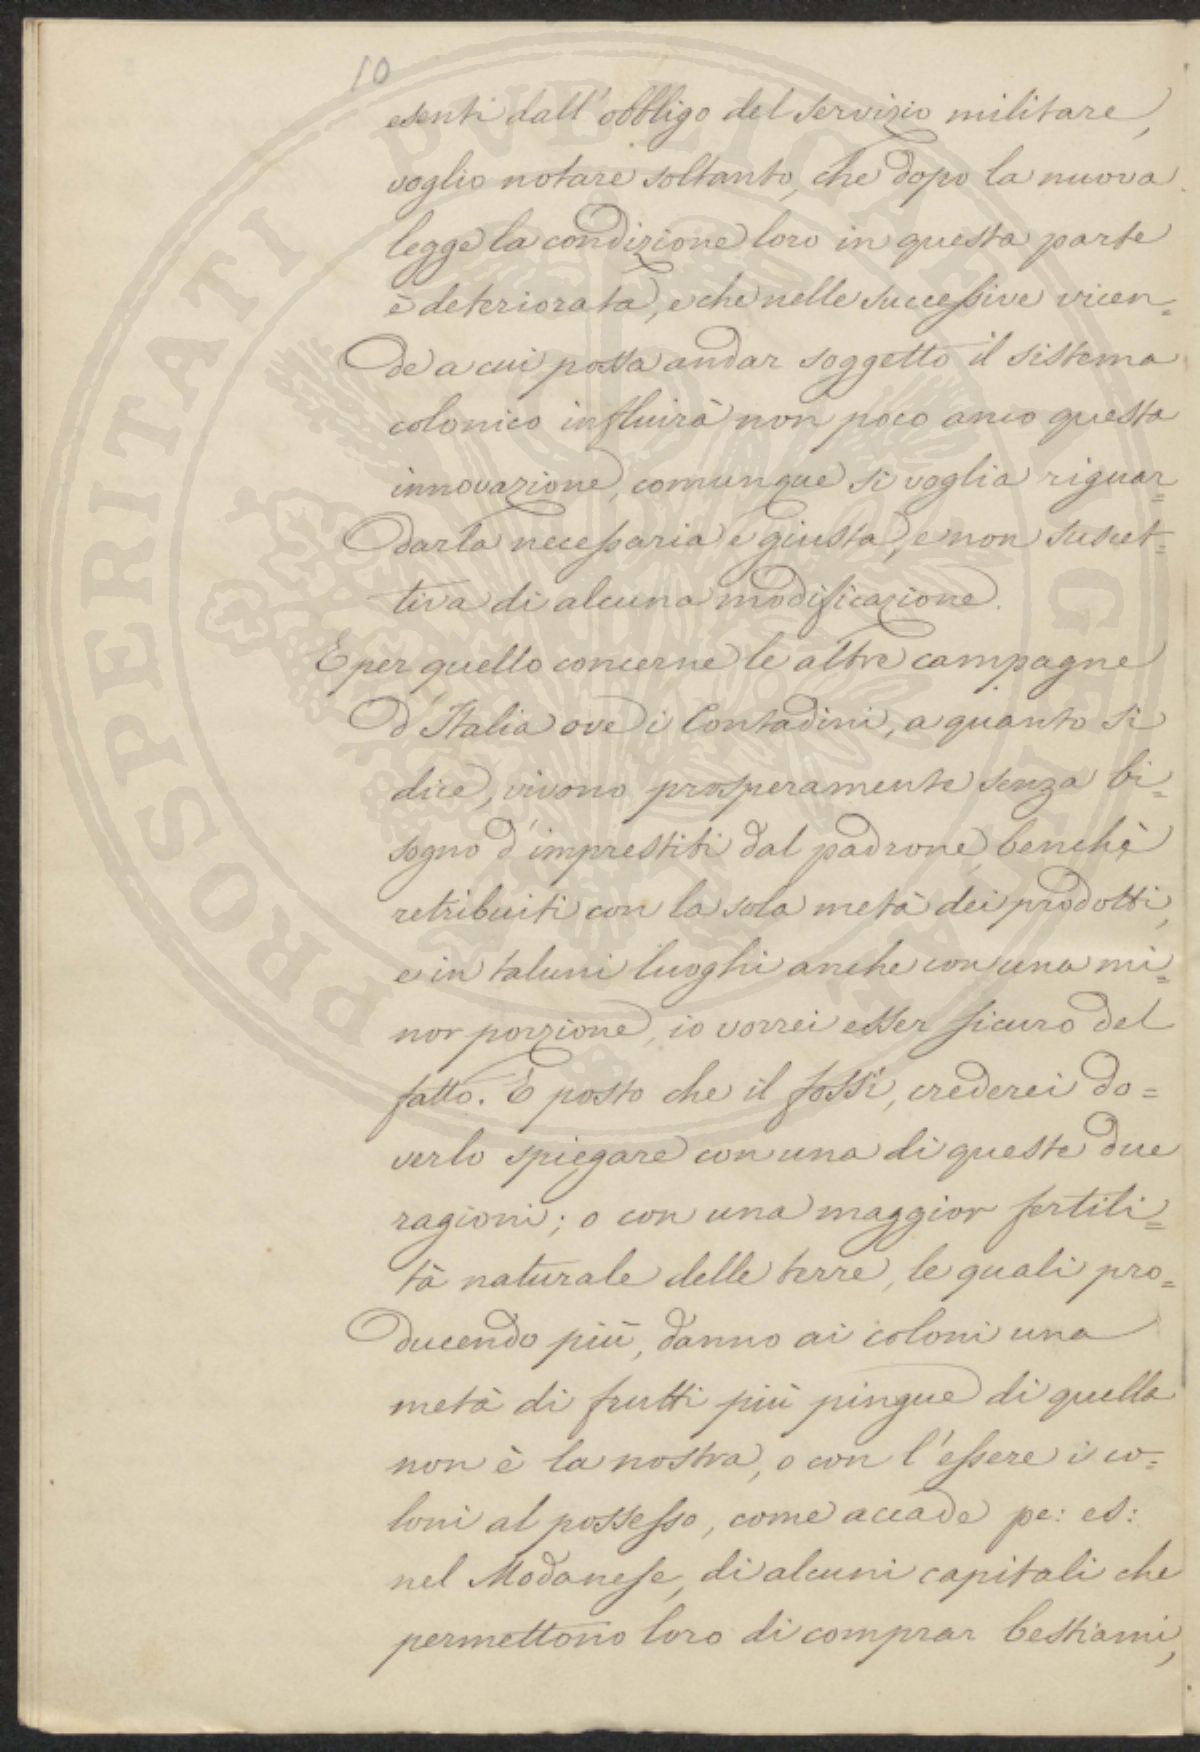 10
esenti dall'obbligo del servizio militare,
voglio notare soltanto, che dopo la nuova
legge la condizione loro in questa parte
è deteriorata, e che nelle successive vicen=
de a cui possa andar soggetto il sistema
colonico influirà non poco anco questa
innovazione, comunque si voglia riguar=
darla necessaria e giusta, e non suscet=
tiva di alcuna modificazione.
E per quello concerne le altre campagne
d'Italia ove i Contadini, a quanto si
dice, vivono prosperamente senza bi=
sogno d'imprestiti dal padrone, benchè
retribuiti con la sola metà dei prodotti,
e in taluni luoghi anche con una mi=
nor porzione, io vorrei esser sicuro del
fatto. E posto che il fossi, crederei do=
verlo spiegare con una di queste due
ragioni; o con una maggior fertili=
tà naturale delle terre, le quali pro=
ducendo più, danno ai coloni una
metà di frutti più pingue di quella
non è la nostra, o con l'essere i co=
loni al possesso, come accade pe: es:
nel Modanese, di alcuni capitali che
permettono loro di comprar bestiami,
PROSPERITATI PUBLICAE AUGENDAE